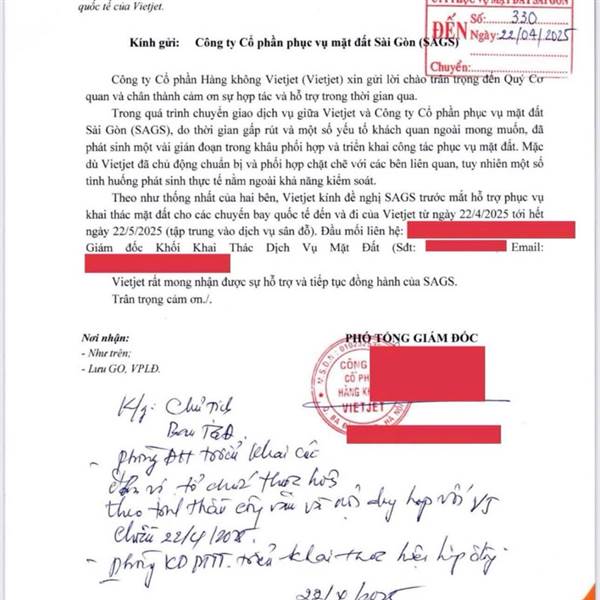 quốc tế của Vietjet.
CTY PHỤC VỤ MẶT ĐẤT SÀI GÒN
ĐẾN
Số: 330
Ngày: 22/04/2025
Chuyển:
Kính gửi: Công ty Cổ phần phục vụ mặt đất Sài Gòn (SAGS)
Công ty Cổ phần Hàng không Vietjet (Vietjet) xin gửi lời chào trân trọng đến Quý Cơ
quan và chân thành cảm ơn sự hợp tác và hỗ trợ trong thời gian qua.
Trong quá trình chuyển giao dịch vụ giữa Vietjet và Công ty Cổ phần phục vụ mặt đất
Sài Gòn (SAGS), do thời gian gấp rút và một số yếu tố khách quan ngoài mong muốn, đã
phát sinh một vài gián đoạn trong khâu phối hợp và triển khai công tác phục vụ mặt đất. Mặc
dù Vietjet đã chủ động chuẩn bị và phối hợp chặt chẽ với các bên liên quan, tuy nhiên một số
tình huống phát sinh thực tế nằm ngoài khả năng kiểm soát.
Theo như thống nhất của hai bên, Vietjet kính đề nghị SAGS trước mắt hỗ trợ phục vụ
khai thác mặt đất cho các chuyến bay quốc tế đến và đi của Vietjet từ ngày 22/4/2025 tới hết
ngày 22/5/2025 (tập trung vào dịch vụ sân đỗ). Đầu mối liên hệ:
Giám đốc Khối Khai Thác Dịch Vụ Mặt Đất (Sđt: Email:
Vietjet rất mong nhận được sự hỗ trợ và tiếp tục đồng hành của SAGS.
Trân trọng cảm ơn./.
Nơi nhận:
- Như trên;
- Lưu GO, VPLĐ.
PHÓ TỔNG GIÁM ĐỐC
CÔNG
CỔ PH
HÀNG KH
VIETJET
K/g: Chủ tịch
Ban TGĐ
- phòng ĐH triển khai các
đơn vị tổ chức thực hiện
theo tinh thần công văn và nội dung họp với VJ
chiều 22/4/2025.
- phòng KD PTTT triển khai thực hiện hợp đồng